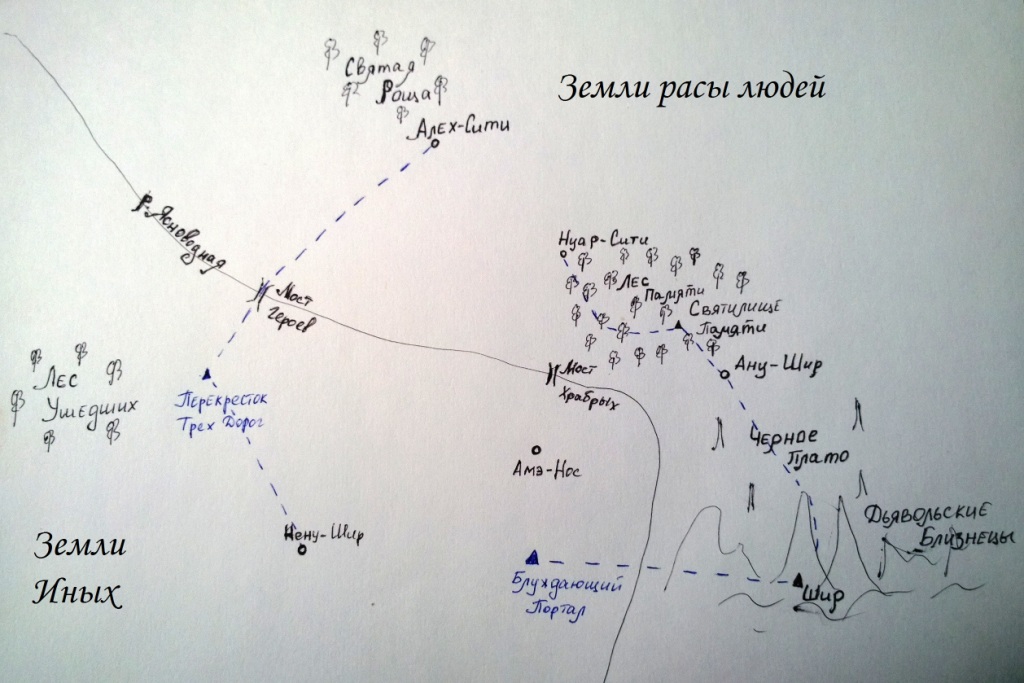 Святая
Роща
Земли расы людей
Алех-Сити
Р. Ясноводная
Нуар-Сити
Лес
Памяти
Святилище
Памяти
Мост
Героев
Мост
Храбрых
Ану-Шир
Лес
Ушедших
Перекресток
Трех Дорог
Черное
Плато
Амэ-Нос
Дьявольские
Близнецы
Нену-Шир
Земли
Иных
Блуждающий
Портал
Шир